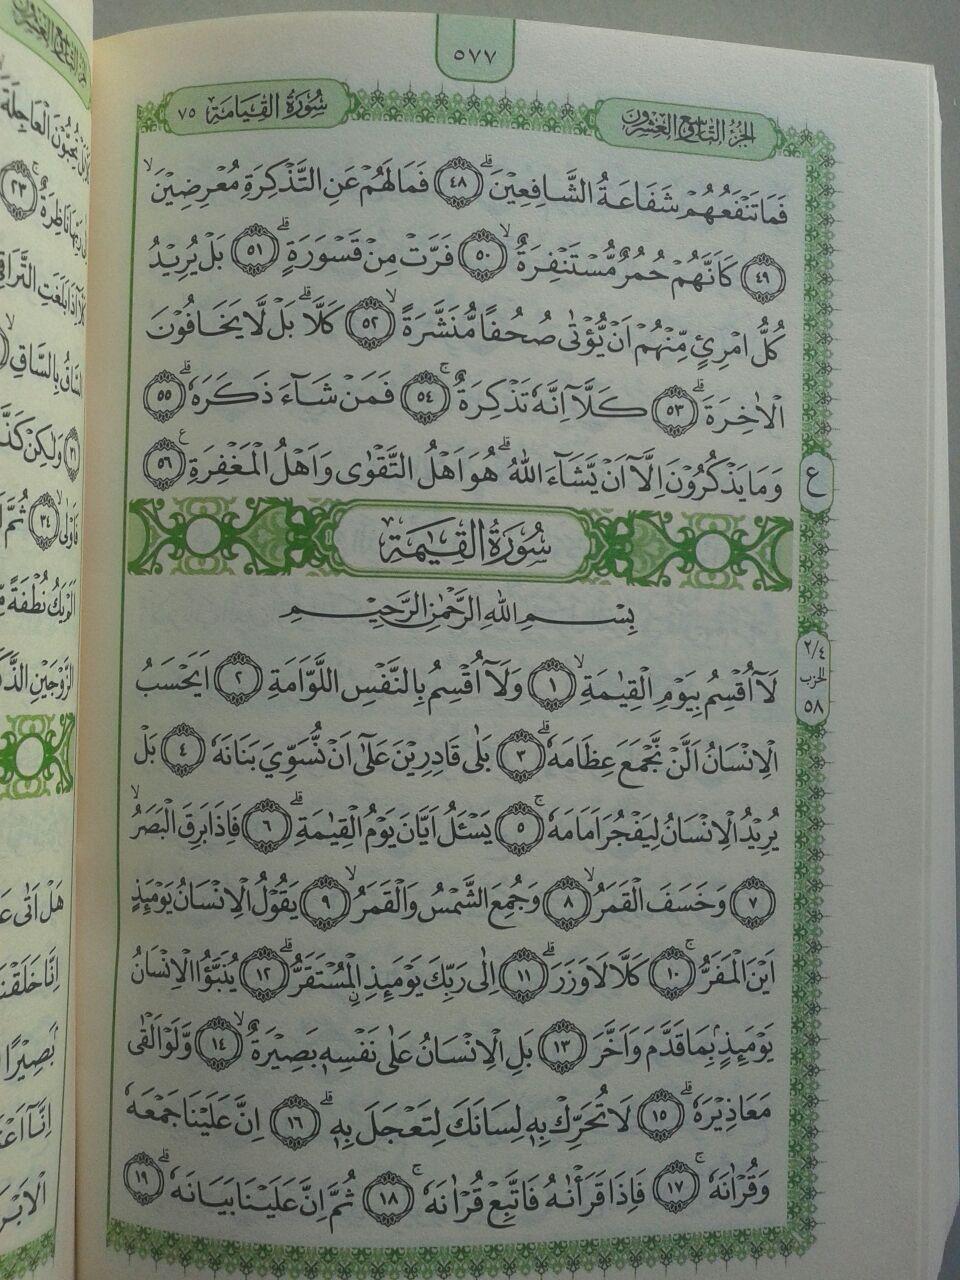 ٥٧٧
الجزء التاسع والعشرون
سورة القيامة ٧٥
فَمَا تَنْفَعُهُمْ شَفَاعَةُ الشَّافِعِيْنَۗ ﴿٤٨﴾ فَمَا لَهُمْ عَنِ التَّذْكِرَةِ مُعْرِضِيْنَۙ
﴿٤٩﴾ كَاَنَّهُمْ حُمُرٌ مُّسْتَنْفِرَةٌۙ ﴿٥٠﴾ فَرَّتْ مِنْ قَسْوَرَةٍۗ ﴿٥١﴾ بَلْ يُرِيْدُ
كُلُّ امْرِئٍ مِّنْهُمْ اَنْ يُّؤْتٰى صُحُفًا مُّنَشَّرَةًۙ ﴿٥٢﴾ كَلَّاۗ بَلْ لَّا يَخَافُوْنَ
الْاٰخِرَةَۗ ﴿٥٣﴾ كَلَّآ اِنَّهٗ تَذْكِرَةٌۚ ﴿٥٤﴾ فَمَنْ شَاۤءَ ذَكَرَهٗۗ ﴿٥٥﴾
وَمَا يَذْكُرُوْنَ اِلَّآ اَنْ يَّشَاۤءَ اللّٰهُۗ هُوَ اَهْلُ التَّقْوٰى وَاَهْلُ الْمَغْفِرَةِ ﴿٥٦﴾
ع
سُوْرَةُ الْقِيٰمَةِ
بِسْمِ اللّٰهِ الرَّحْمٰنِ الرَّحِيْمِ
لَآ اُقْسِمُ بِيَوْمِ الْقِيٰمَةِۙ ﴿١﴾ وَلَآ اُقْسِمُ بِالنَّفْسِ اللَّوَّامَةِ ﴿٢﴾ اَيَحْسَبُ
٢/٤ الحزب ٥٨
الْاِنْسَانُ اَلَّنْ نَّجْمَعَ عِظَامَهٗۗ ﴿٣﴾ بَلٰى قَادِرِيْنَ عَلٰٓى اَنْ نُّسَوِّيَ بَنَانَهٗ ﴿٤﴾ بَلْ
يُرِيْدُ الْاِنْسَانُ لِيَفْجُرَ اَمَامَهٗۚ ﴿٥﴾ يَسْـَٔلُ اَيَّانَ يَوْمُ الْقِيٰمَةِۗ ﴿٦﴾ فَاِذَا بَرِقَ الْبَصَرُۙ
﴿٧﴾ وَخَسَفَ الْقَمَرُۙ ﴿٨﴾ وَجُمِعَ الشَّمْسُ وَالْقَمَرُۙ ﴿٩﴾ يَقُوْلُ الْاِنْسَانُ يَوْمَىِٕذٍ
اَيْنَ الْمَفَرُّۚ ﴿١٠﴾ كَلَّا لَا وَزَرَۗ ﴿١١﴾ اِلٰى رَبِّكَ يَوْمَىِٕذِ ِۨالْمُسْتَقَرُّۗ ﴿١٢﴾ يُنَبَّؤُا الْاِنْسَانُ
يَوْمَىِٕذٍۢ بِمَا قَدَّمَ وَاَخَّرَ ﴿١٣﴾ بَلِ الْاِنْسَانُ عَلٰى نَفْسِهٖ بَصِيْرَةٌۙ ﴿١٤﴾ وَّلَوْ اَلْقٰى
مَعَاذِيْرَهٗۗ ﴿١٥﴾ لَا تُحَرِّكْ بِهٖ لِسَانَكَ لِتَعْجَلَ بِهٖۗ ﴿١٦﴾ اِنَّ عَلَيْنَا جَمْعَهٗ
وَقُرْاٰنَهٗۚ ﴿١٧﴾ فَاِذَا قَرَأْنٰهُ فَاتَّبِعْ قُرْاٰنَهٗۚ ﴿١٨﴾ ثُمَّ اِنَّ عَلَيْنَا بَيَانَهٗۗ ﴿١٩﴾